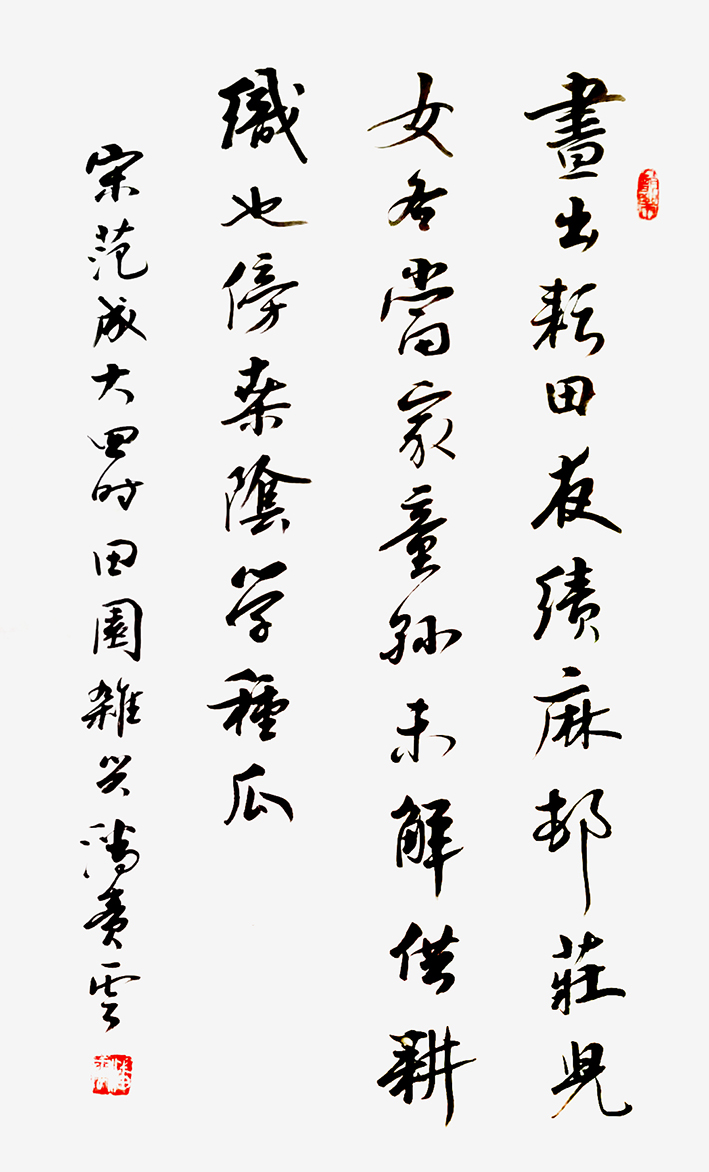 晝出耘田夜績麻邨莊兒
女各當家童孫未解供耕
織也傍桑陰学種瓜
宋范成大四时田園雜兴潘雲